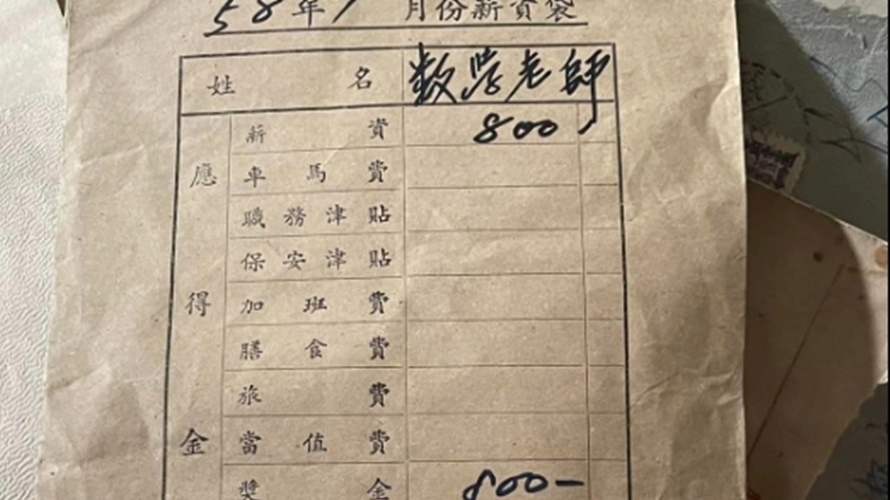 58年1月份薪資袋
姓名 数学老師
應得金
薪資 800
車馬費
職務津貼
保安津貼
加班費
膳食費
旅費
當值費
獎金 800-